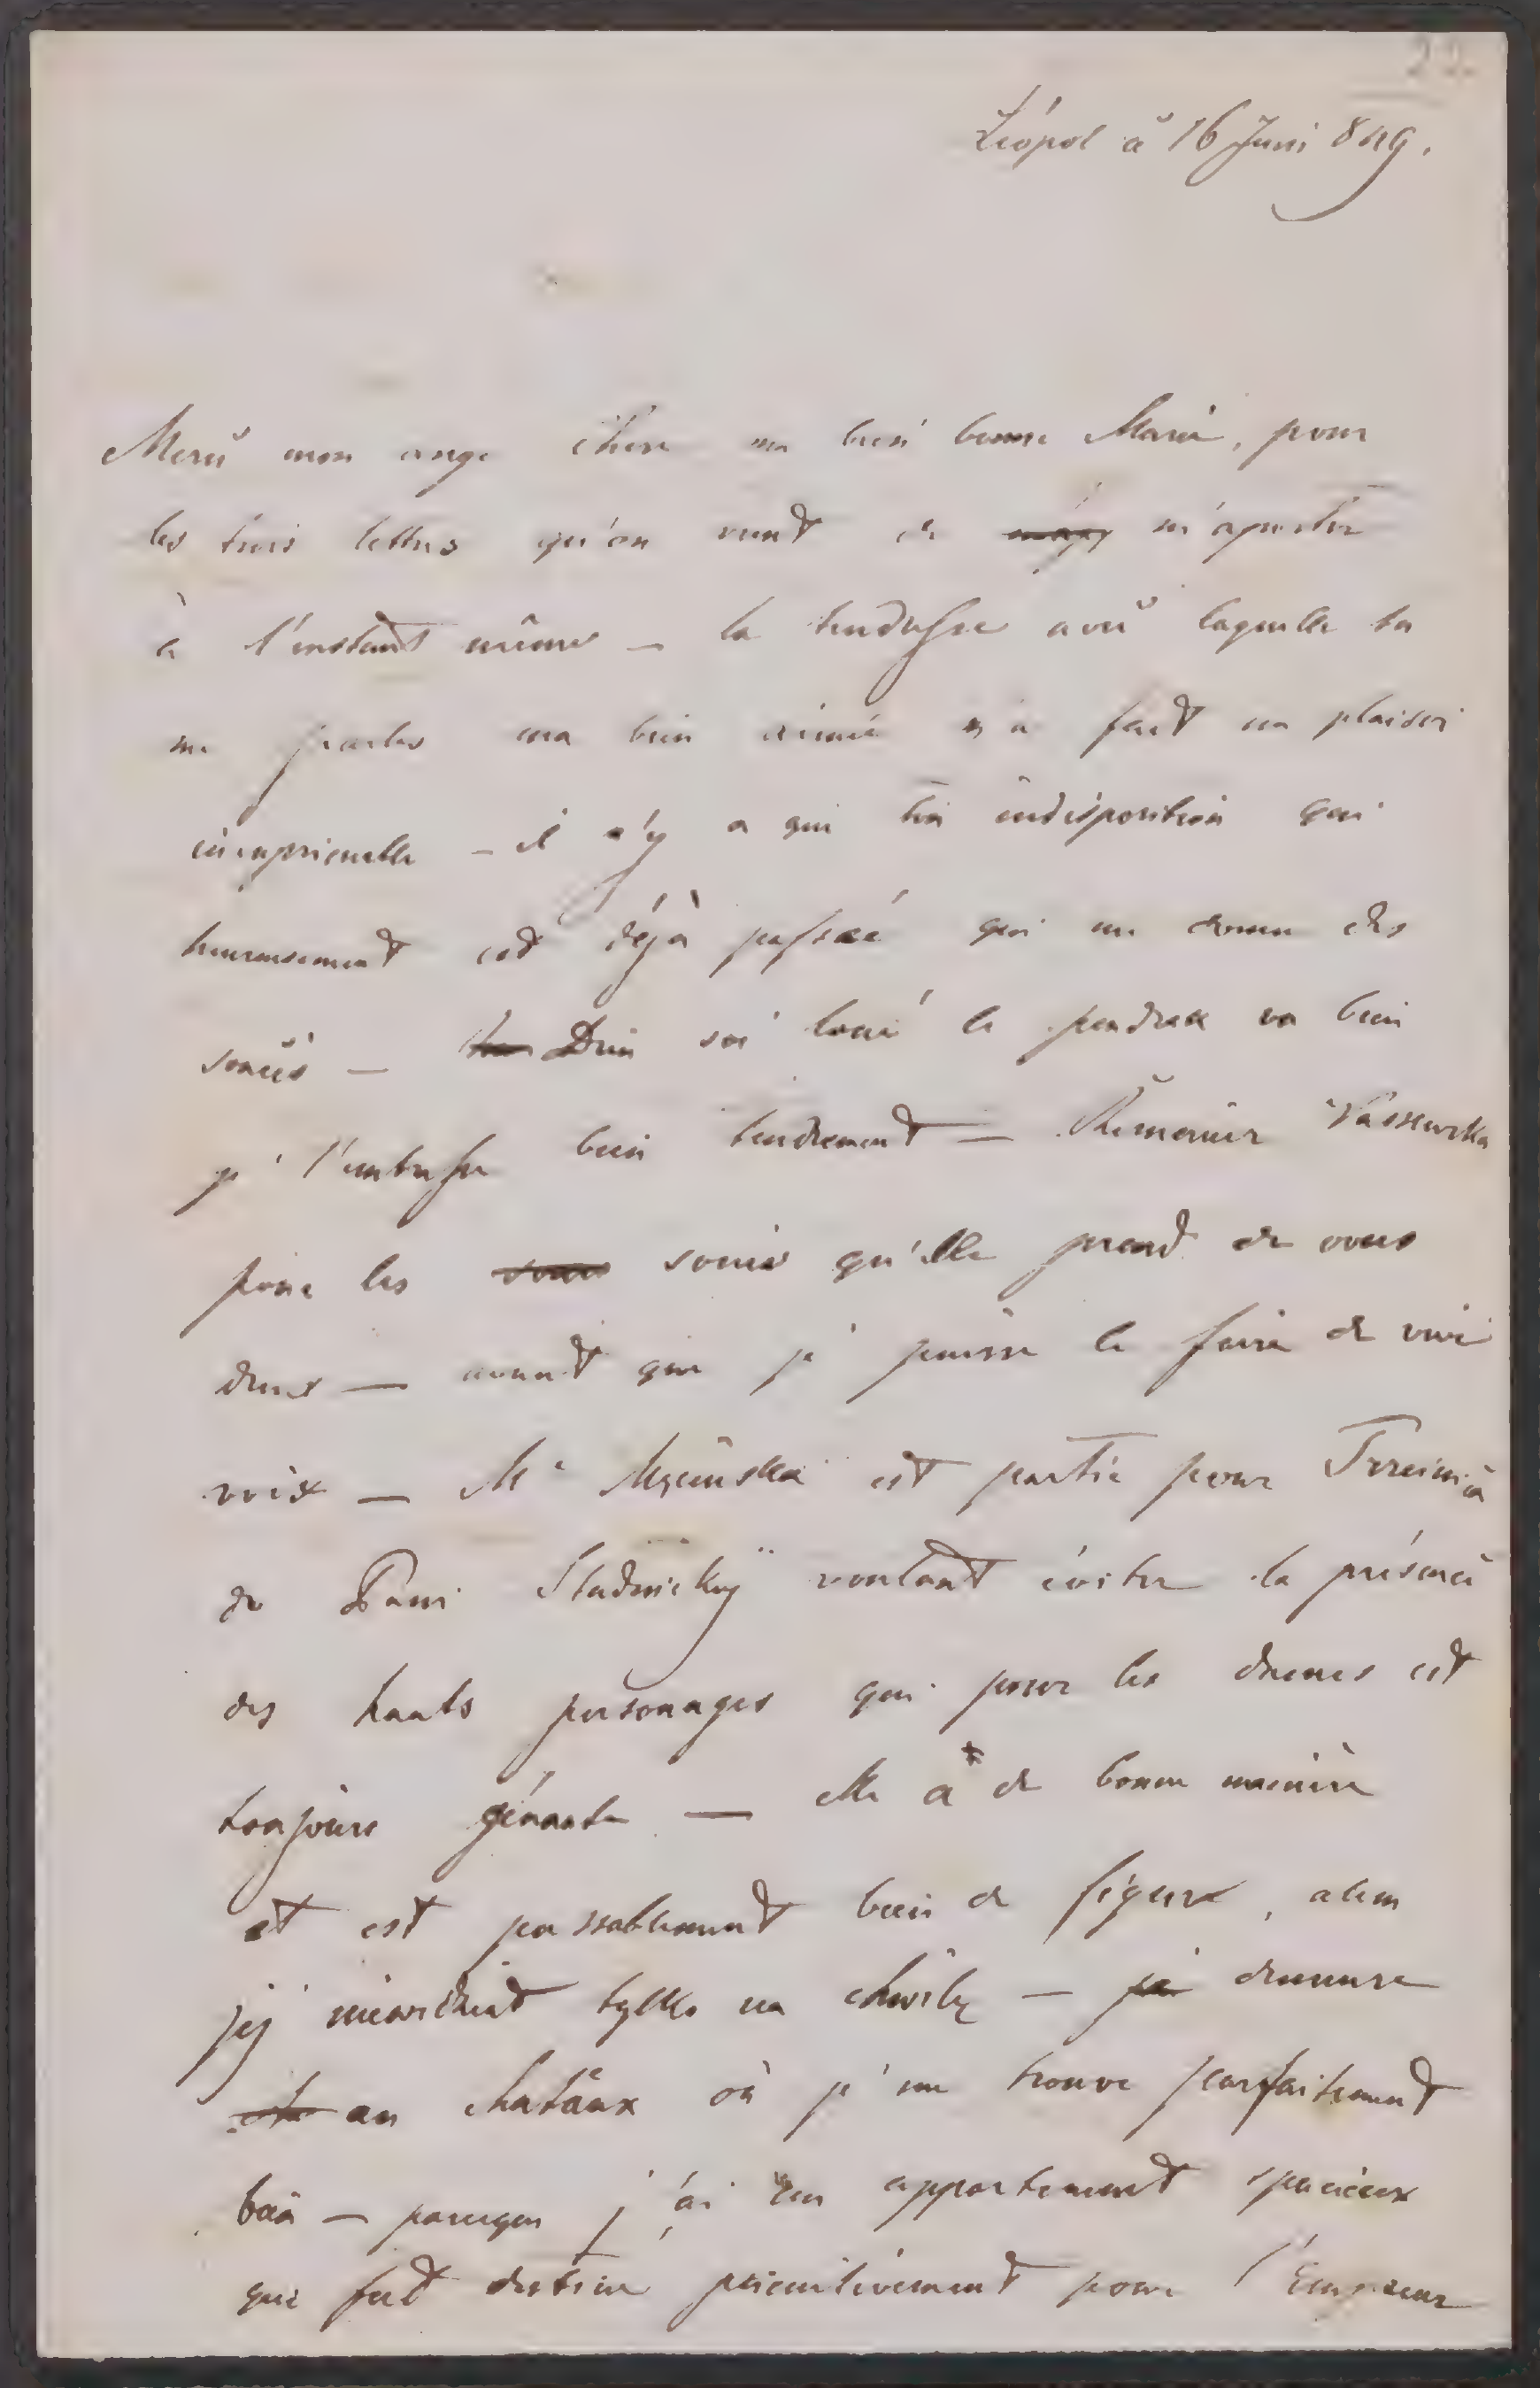 22
Léopol à 16 Juni 849.
Merci mon ange chere ma bien bonne Marie, pour
les trois lettres qu'on vient de m'aporter
à l'instant même – la tendresse avec laquelle tu
me parles ma bien aimée m'a fait un plaisir
– il n'y a que ton indisposition qui
heureusement est déjà passée qui me donne des
soucis – Dieu soi loué le va bien
je l'embrasse bien tendrement –
pour les soucis qu'elle prend de vous
deux – avant que je puisse le faire de vive
voix – Me est partie pour
de Pani Studnicky voulant éviter la présence
des hauts personages qui pour les dames est
toujours génante – elle a de bonne manière
et est passablement bien de figure, alem
jej widział tylko na chwilę – je demeure
au chatâux où je me trouve parfaitement
bien – parceque j'ai un appartement spacieux
qui fut destiné primitivement pour l'Empereur